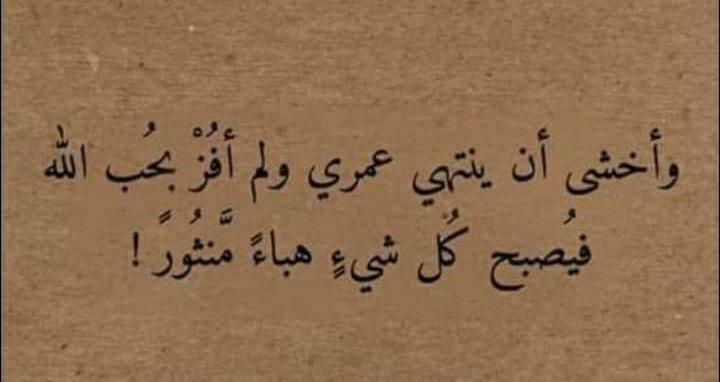 وأخشى أن ينتهي عمري ولم أفُزْ بحُب الله
فيُصبح كُل شيءٍ هباءً مَّنثُورً !